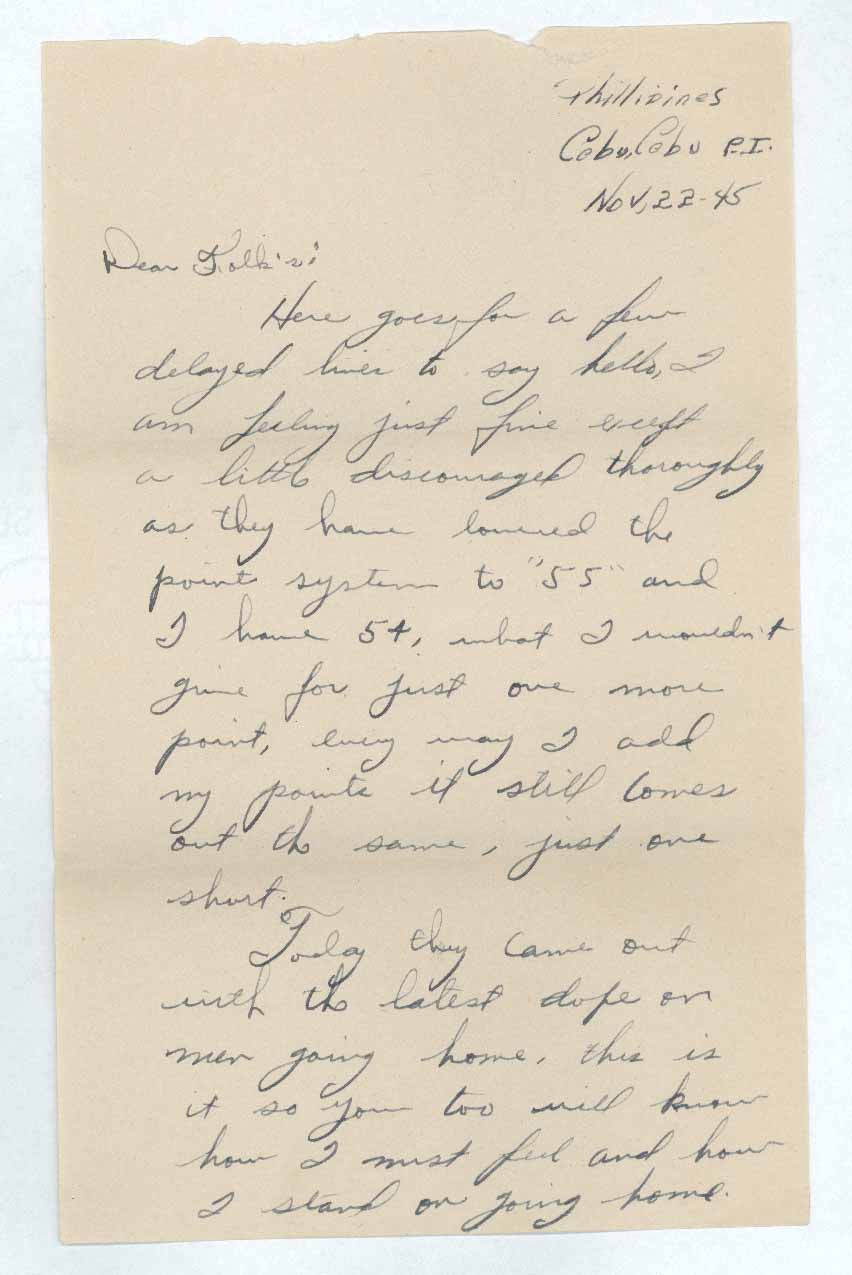 Phillipines
Cebu, Cebu P.I.
Nov, 22-45
Dear Folk's:
Here goes for a few
delayed lines to say hello, I
am feeling just fine except
a little discouraged thoroughly
as they have lowered the
point system to "55" and
I have 54, what I wouldn't
give for just one more
point, every way I add
my points it still comes
out the same, just one
short.
Today they came out
with the latest dope on
men going home, this is
it so you too will know
how I must feel and how
I stand on going home.